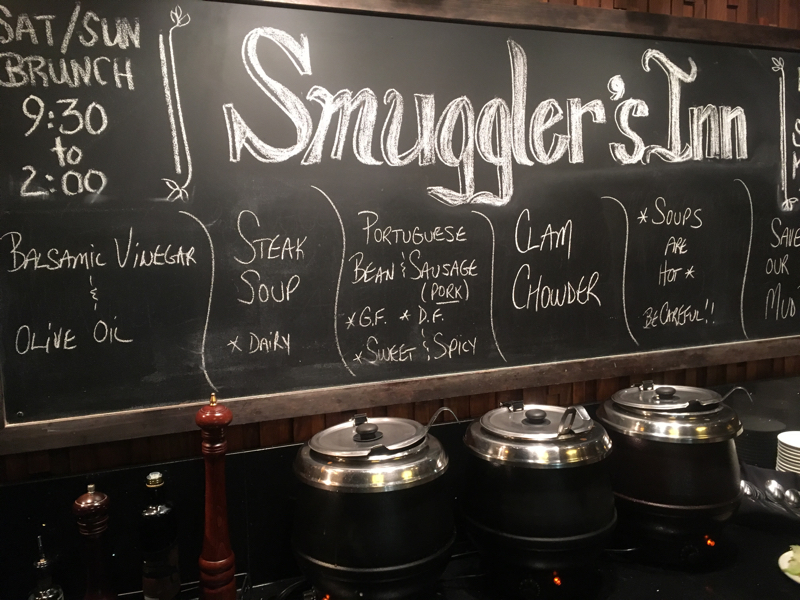 SAT/SUN
BRUNCH
9:30
to
2:00
Smuggler's Inn
BALSAMIC VINEGAR
&
OLIVE OIL
STEAK
SOUP
* DAIRY
PORTUGUESE
BEAN & SAUSAGE
(PORK)
*G.F. * D.F.
*SWEET & SPICY
CLAM
CHOWDER
*SOUPS
ARE
HOT *
BE CAREFUL!!
SAVE
OUR
MUD